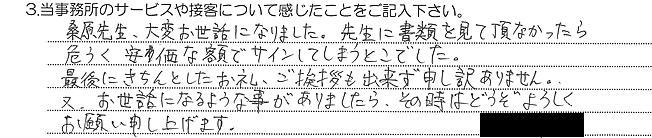 3.当事務所のサービスや接客について感じたことをご記入下さい。
桑原先生、大変お世話になりました。先生に書類を見て頂なかったら
危うく安価な額でサインしてしまうとこでした。
最後にきちんとしたお礼、ご挨拶も出来ず申し訳ありません。
又、お世話になるような事がありましたら、その時はどうぞよろしく
お願い申し上げます。